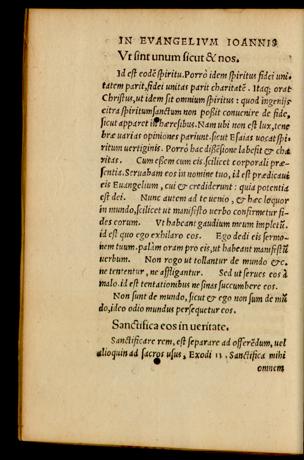 IN EVANGELIVM IOANNIS
Vt sint unum sicut & nos.
Id est eodē spiritu. Porrò idem spiritus fidei uni-
tatem parit, fidei unitas parit charitatē. Itaq; orat
Christus, ut idem sit omnium spiritus: quod ingenijs
citra spiritum sanctum non possit conuenire de fide,
sicut apparet in hæresibus. Nam ubi non est lux, tene
bræ uarias opiniones pariunt. sicut Esaias uocat spi-
ritum uertiginis. Porrò hac dissēsione labefit & cha
ritas. Cum essem cum eis. scilicet corporali præ-
sentia. Seruabam eos in nomine tuo, id est prædicaui
eis Euangelium, cui & crediderunt: quia potentia
est dei. Nunc autem ad te uenio, & hæc loquor
in mundo, scilicet ut manifesto uerbo confirmetur fi-
des eorum. Vt habeant gaudium meum impletū.
id est quo ego exhilaro eos. Ego dedi eis sermo-
nem tuum. palàm oram pro eis, ut habeant manifestū
uerbum. Non rogo ut tollantur de mundo &c.
ne tententur, ne affligantur. Sed ut serues eos à
malo. id est tentationibus ne sinas succumbere eos.
Non sunt de mundo, sicut & ego non sum de mū
do, ideo odio mundus persequetur eos.
Sanctifica eos in ueritate.
Sanctificare rem, est separare ad offerēdum, uel
alioquin ad sacros usus, Exodi 13. Sanctifica mihi
omnem